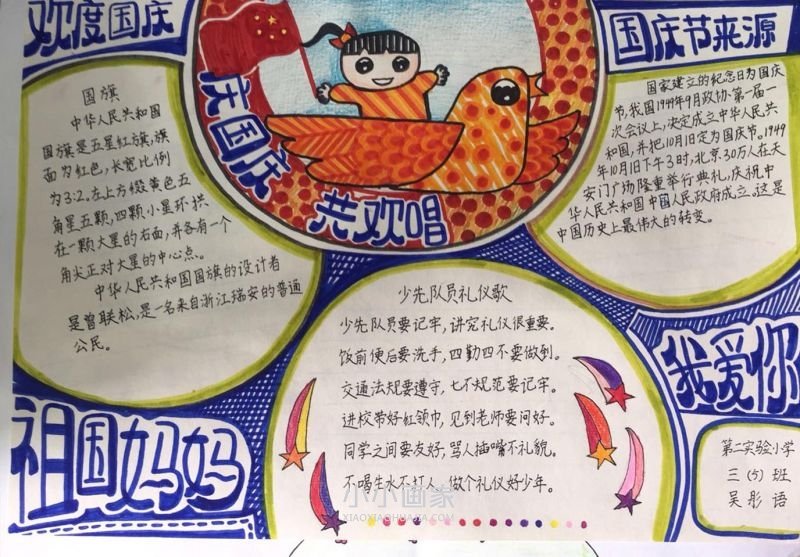 欢度国庆
国旗
中华人民共和国
国旗是五星红旗,旗
面为红色,长宽比例
为3:2。左上方缀黄色五
角星五颗,四颗小星环拱
在一颗大星的右面,并各有一个
角尖正对大星的中心点。
中华人民共和国国旗的设计者
是曾联松,是一名来自浙江瑞安的普通
公民。
庆国庆
共欢唱
国庆节来源
国家建立的纪念日为国庆
节,我国1949年9月政协第一届一
次会议上,决定成立中华人民共
和国,并把10月1日定为国庆节。1949
年10月1日下午3时,北京30万人在天
安门广场隆重举行典礼,庆祝中
华人民共和国中国人民政府成立。这是
中国历史上最伟大的转变。
少先队员礼仪歌
少先队员要记牢,讲究礼仪很重要。
饭前便后要洗手,四勤四不要做到。
交通法规要遵守,七不规范要记牢。
进校带好红领巾,见到老师要问好。
同学之间要友好,骂人插嘴不礼貌。
不喝生水不打人,做个礼仪好少年。
祖国妈妈
我爱你
第二实验小学
三(5)班
吴彤语
小小画家
XIAOXIAOHUAJIA.COM